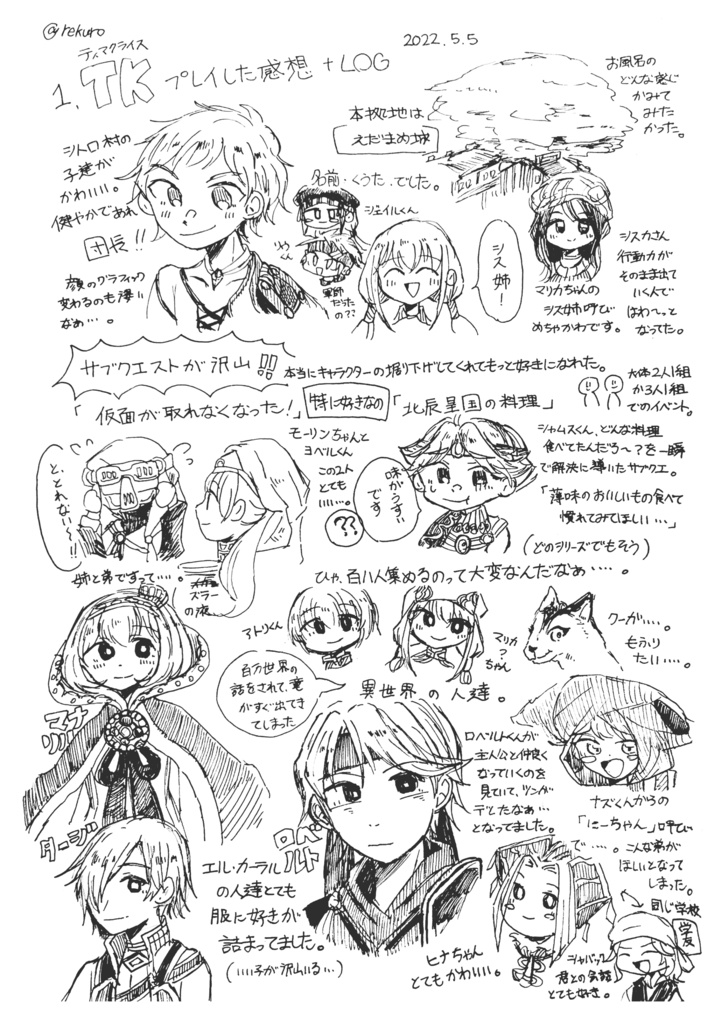 @rekuro
2022.5.5
ティアクライス
1. TK プレイした感想 +LOG
お風呂の
どんな感じ
かみて
みた
かった。
本拠地は
えだまめ城
シトロ村の
子達が
かわいい。
健やかであれ
団長!!
名前・くうた、でした。
ジェイルくん
軍師
だったの??
シス姉!
シスカさん
行動力が
そのまま出て
いくんで
はわ〜っと
なってた。
マリカちゃんの
シス姉呼び
めちゃかわです。
顔のグラフィック
変わるのも凄い
なぁ…。
サブクエストが沢山!!
本当にキャラクターの掘り下げしてくれてもっと好きになれた。
大体2人1組
か3人1組
でのイベント。
「仮面が取れなくなった!」
特に好きなの
「北辰呈国の料理」
と、とれない〜!!
モーリンちゃんと
ヨベルくん
この2人
とても
いい…。
??
味がうすい
です。
シャムスくん、どんな料理
食べてたんだろ〜?を一瞬
で解決に導いたサブクエ。
「薄味のおいしいもの食べて
慣れてみてほしい…」
(どのシリーズでもそう)
姉と弟ですって…。
ズラーの液
ひゃ、百八人集めるのって大変なんだなぁ…。
アトリくん
マリカ
?
ちゃん
クーが…。
もふり
たい…。
百万世界の
話をされて、竜
がすぐ出てき
てしまった
異世界の人達。
マナリル
ロベルト
ロベルトくんが
主人公と仲良く
なっていくのを
見ていて、ツンが
デレたなぁ…
となってました。
ナズくんからの
「にーちゃん」呼び
で…。こんな弟が
ほしいとなって
しまった。
ダージ
エル・カーラル
の人達とても
服に好きが
詰まってました。
(いい子が沢山いる…)
ヒナちゃん
とてもかわいい。
同じ学校
学友
シャバック
君との会話
とても好き。